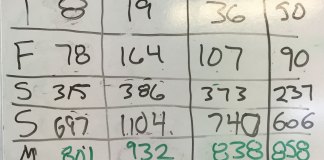 8 19 36 50
F 78 164 107 90
S 315 386 373 237
S 697 1104. 740 606
M 801 932 838 858